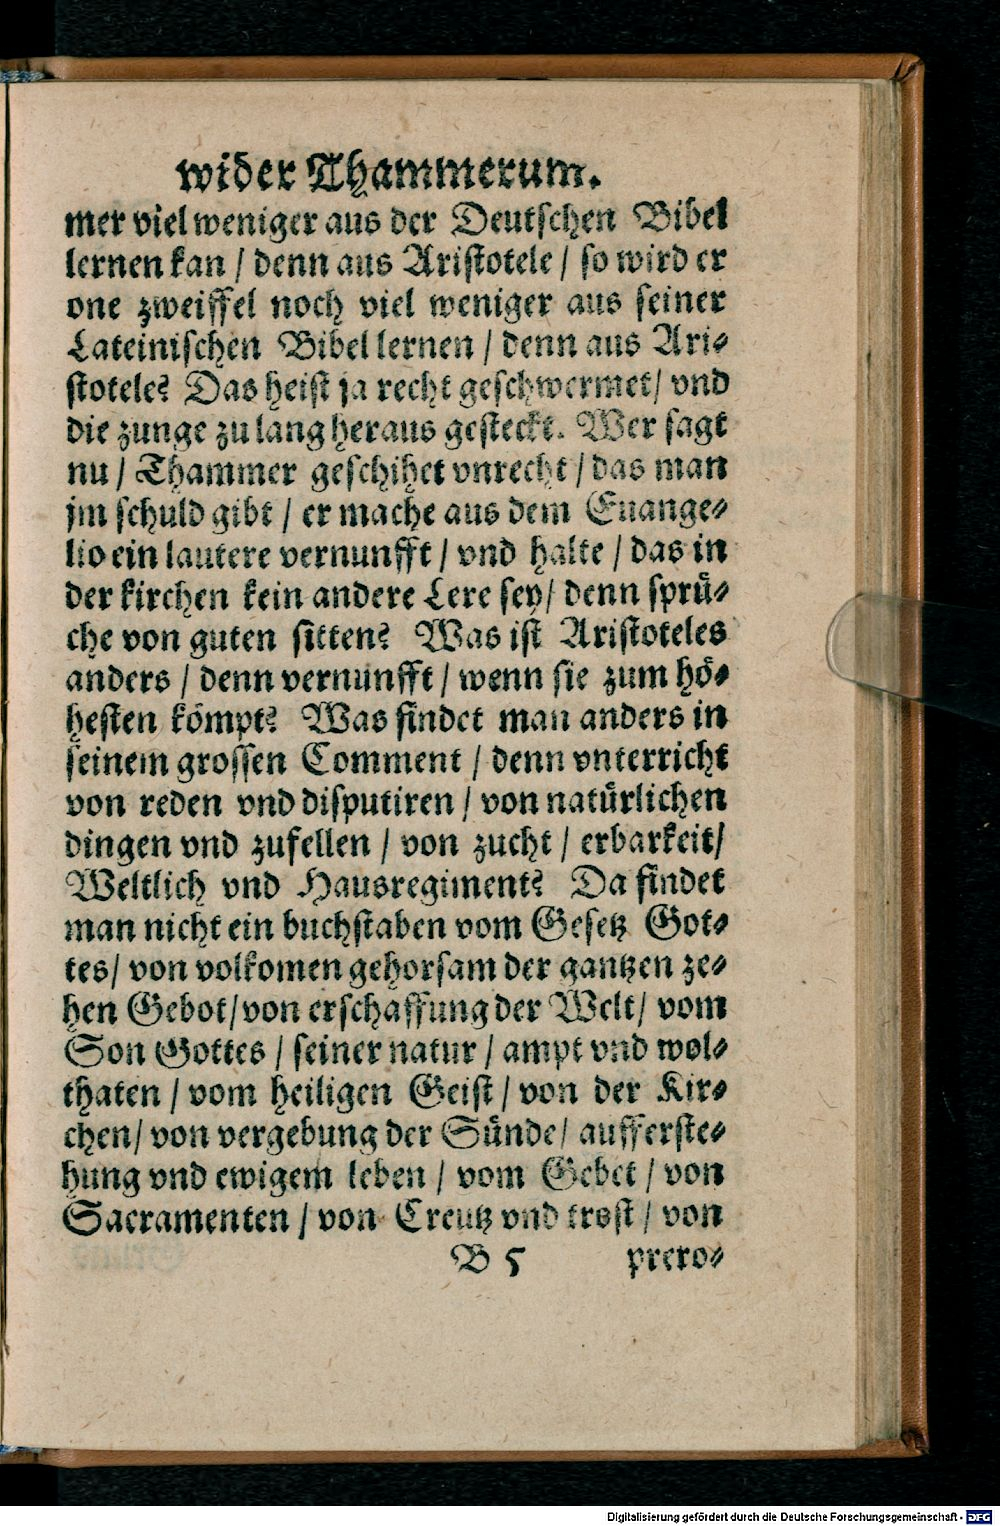 wider Thammerum.
mer viel weniger aus der Deutschen Bibel
lernen kan / denn aus Aristotele / so wird er
one zweiffel noch viel weniger aus seiner
Lateinischen Bibel lernen / denn aus Ari⸗
stotele? Das heist ja recht geschwermet / vnd
die zunge zu lang heraus gesteckt. Wer sagt
nu / Thammer geschihet vnrecht / das man
jm schuld gibt / er mache aus dem Euange⸗
lio ein lautere vernunfft / vnd halte / das in
der kirchen kein andere Lere sey / denn sprü⸗
che von guten sitten? Was ist Aristoteles
anders / denn vernunfft / wenn sie zum hö⸗
hesten kömpt? Was findet man anders in
seinem grossen Comment / denn vnterricht
von reden vnd disputiren / von natürlichen
dingen vnd zufellen / von zucht / erbarkeit /
Weltlich vnd Hausregiment? Da findet
man nicht ein buchstaben vom Gesetz Got⸗
tes / von volkomen gehorsam der gantzen ze⸗
hen Gebot / von erschaffung der Welt / vom
Son Gottes / seiner natur / ampt vnd wol⸗
thaten / vom heiligen Geist / von der Kir⸗
chen / von vergebung der Sünde / aufferste⸗
hung vnd ewigem leben / vom Gebet / von
Sacramenten / von Creutz vnd trost / von
B 5 prero⸗
Digitalisierung gefördert durch die Deutsche Forschungsgemeinschaft - DFG